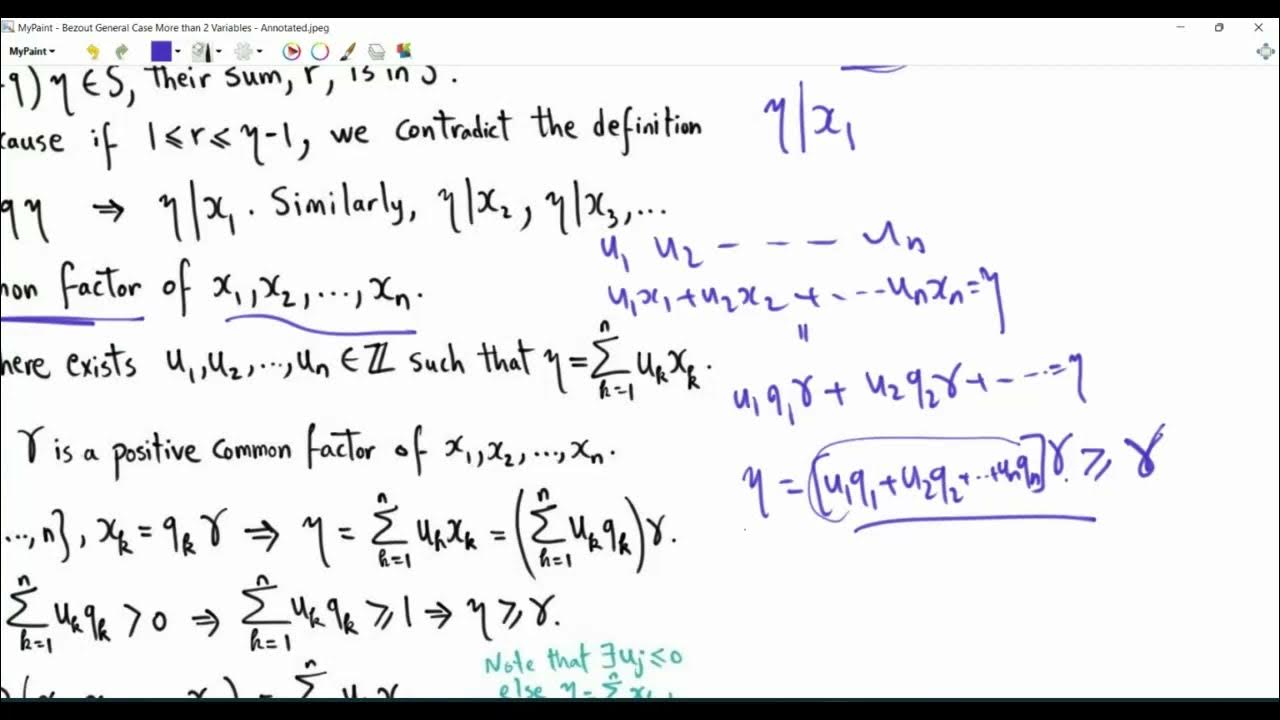 MyPaint - Bezout General Case More than 2 Variables - Annotated.jpeg
MyPaint
-q) η ∈ S, Their sum, r, is in S.
cause if 1 ≤ r ≤ η-1, we contradict the definition
qη ⇒ η|x₁. Similarly, η|x₂, η|x₃,...
mon factor of x₁,x₂,...,xₙ.
here exists u₁,u₂,...,uₙ ∈ ℤ such that η = ∑ₖ₌₁ⁿ uₖxₖ.
γ is a positive common factor of x₁,x₂,...,xₙ.
...,n}, xₖ = qₖγ ⇒ η = ∑ₖ₌₁ⁿ uₖxₖ = (∑ₖ₌₁ⁿ uₖqₖ)γ.
∑ₖ₌₁ⁿ uₖqₖ > 0 ⇒ ∑ₖ₌₁ⁿ uₖqₖ ≥ 1 ⇒ η ≥ γ.
Note that ∃uⱼ ≤ 0
η|x₁
u₁ u₂ - - - uₙ
u₁x₁+u₂x₂ + ... uₙxₙ = η
=
u₁q₁γ + u₂q₂γ + ... = η
η = [u₁q₁+u₂q₂+...+uₙqₙ]γ ≥ γ